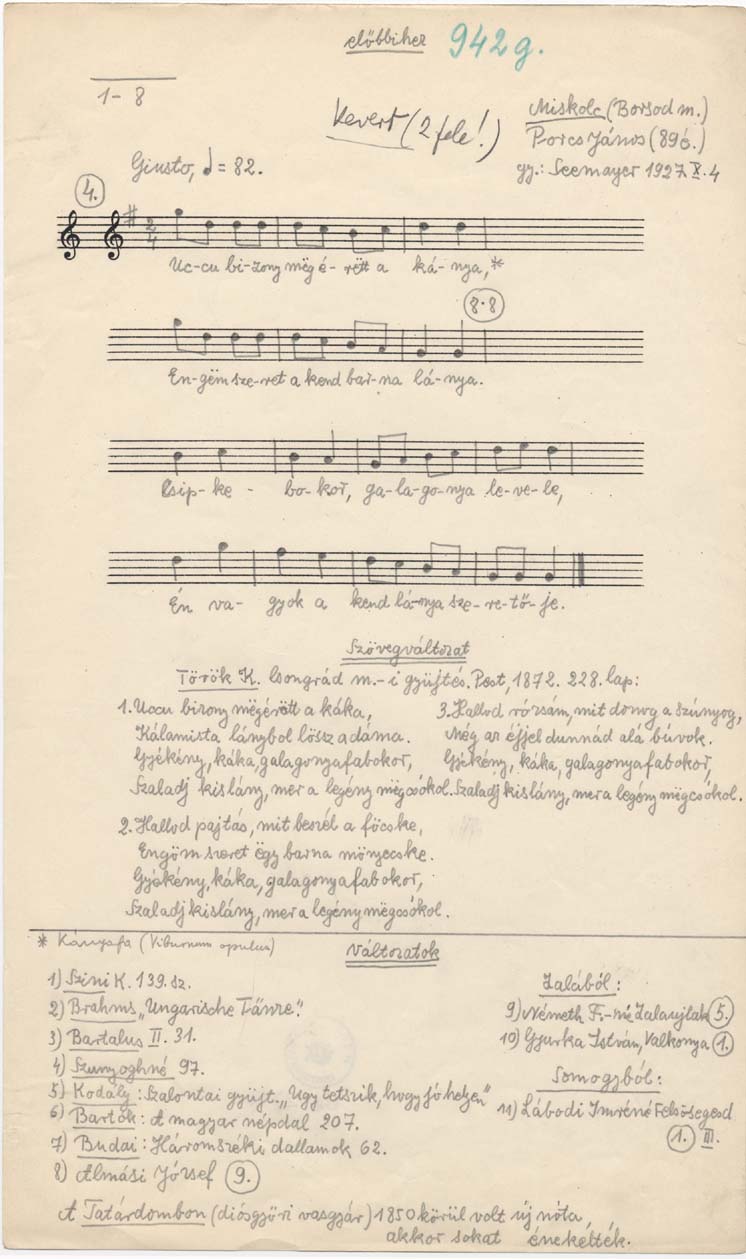 előbbihez 942g.
1-8
Kevert (2 féle!)
Miskolc (Borsod m.)
Porcs János (89é.)
gy.: Seemayer 1927.X.4
Giusto, ♩= 82.
4.
2/4
Uc-cu bi-zony mëg é-rëtt a ká-nya,*
8·8
En-gëm sze-ret a kend bar-na lá-nya.
Csip-ke-bo-kor, ga-la-go-nya le-ve-le,
Én va-gyok a kend lá-nya sze-re-tő-je.
Szövegváltozat
Török K. Csongrád m.-i gyüjtés. Pest, 1872. 228. lap:
1. Uccu bizony mëgérëtt a káka,
Kálamista lánybol lössz a dáma.
Gyékény, káka, galagonyafabokor,
Szaladj kislány, mer a legény mëgcsókol.
2. Hallod pajtás, mit beszél a föcske,
Engöm szeret ëgy barna mönyecske.
Gyékény, káka, galagonyafabokor,
Szaladj kislány, mer a legény mëgcsókol.
3. Hallod rózsám, mit donog a szúnyog,
Még az éjjel dunnád alá búvok.
Gyékény, káka, galagonyafabokor,
Szaladj kislány, mer a legény mëgcsókol.
* Kányafa (Viburnum opulus)
Változatok
1) Szini K. 139. sz.
2) Brahms „Ungarische Tänze."
3) Bartalus II. 31.
4) Szunyoghné 97.
5) Kodály: Szalontai gyüjt. „Ugy tetszik, hogy jó helyen"
6) Bartók: A magyar népdal 207.
7) Budai: Háromszéki dallamok 62.
8) Almási József 9.
Zalából:
9) Németh F.-né Zalaujlak 5.
10) Gyurka István, Valkonya 1.
Somogyból:
11) Lábodi Imréné Felsősegesd
1. III.
A Tatárdombon (diósgyőri vasgyár) 1850 körül volt új nóta,
akkor sokat énekelték.